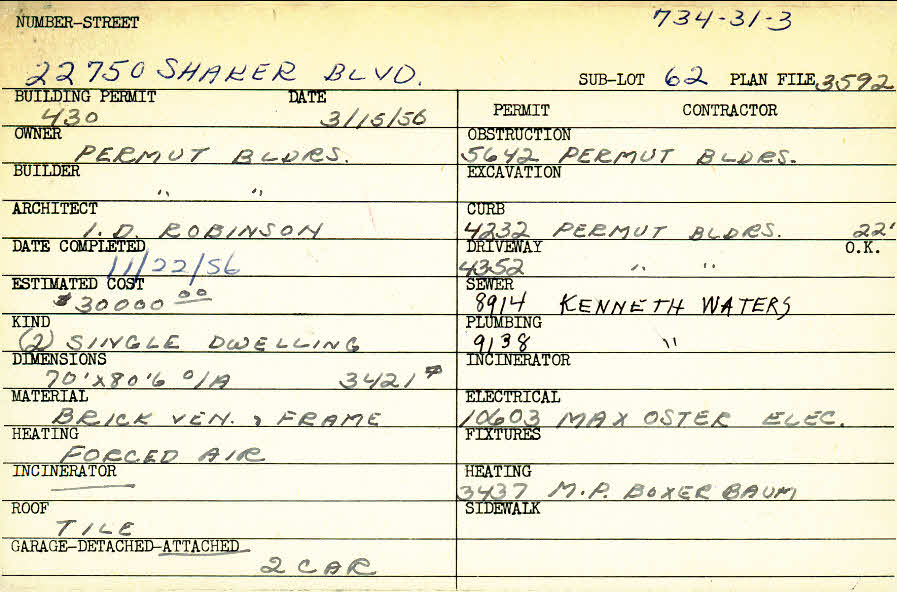 NUMBER-STREET 734-31-3
22750 SHAKER BLVD. SUB-LOT 62 PLAN FILE 3592
BUILDING PERMIT DATE
430 3/15/56
OWNER
PERMUT BLDRS.
BUILDER
" "
ARCHITECT
I. D. ROBINSON
DATE COMPLETED
11/22/56
ESTIMATED COST
$30000 00
KIND
(2) SINGLE DWELLING
DIMENSIONS
70'X80'6 O/A 3421 #
MATERIAL
BRICK VEN. & FRAME
HEATING
FORCED AIR
INCINERATOR
ROOF
TILE
GARAGE-DETACHED-ATTACHED
2 CAR
PERMIT CONTRACTOR
OBSTRUCTION
5642 PERMUT BLDRS.
EXCAVATION
CURB
4232 PERMUT BLDRS. 22'
DRIVEWAY O.K.
4352 " "
SEWER
8914 KENNETH WATERS
PLUMBING
9138 "
INCINERATOR
ELECTRICAL
10603 MAX OSTER ELEC.
FIXTURES
HEATING
3437 M.P. BOXERBAUM
SIDEWALK